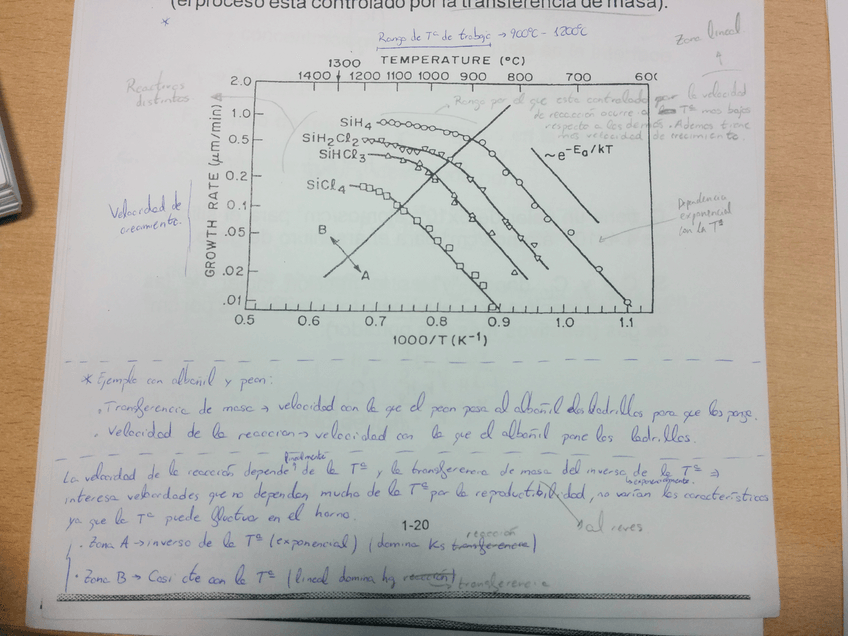 (el proceso está controlado por la transferencia de masa).
* Rango de Tª de trabajo → 900ºC - 1200ºC
Zona lineal
1300 TEMPERATURE (°C)
1400 1200 1100 1000 900 800 700 600
Reactivos
distintos
Rango por el que esta controlado por la velocidad
de reacción ocurre a Tª mas bajas
respecto a los demás. Ademas tiene
mas velocidad de crecimiento.
GROWTH RATE (μm/min)
2.0
1.0
0.5
0.2
0.1
.05
.02
.01
SiH4
SiH2Cl2
SiHCl3
SiCl4
~e-Ea/kT
B
A
Velocidad de
crecimiento.
Dependencia
exponencial
con la Tª
0.5 0.6 0.7 0.8 0.9 1.0 1.1
1000/T (K-1)
* Ejemplo con albañil y peon:
. Transferencia de masa → velocidad con la que el peon pasa al albañil los ladrillos para que los ponga.
. Velocidad de la reaccion → velocidad con la que el albañil pone los ladrillos.
La velocidad de la reacción depende linealmente de la Tª y la transferencia de masa del inverso de la Tª ⇒
exponencialmente.
interesa velocidades que no dependan mucho de la Tª por la reproductibilidad, no varían las características
ya que la Tª puede fluctuar en el horno.
al reves
1-20
· Zona A → inverso de la Tª (exponencial) (domina Ks transferencia) reacción
· Zona B → Casi cte con la Tª (lineal domina hg reacción) transferencia